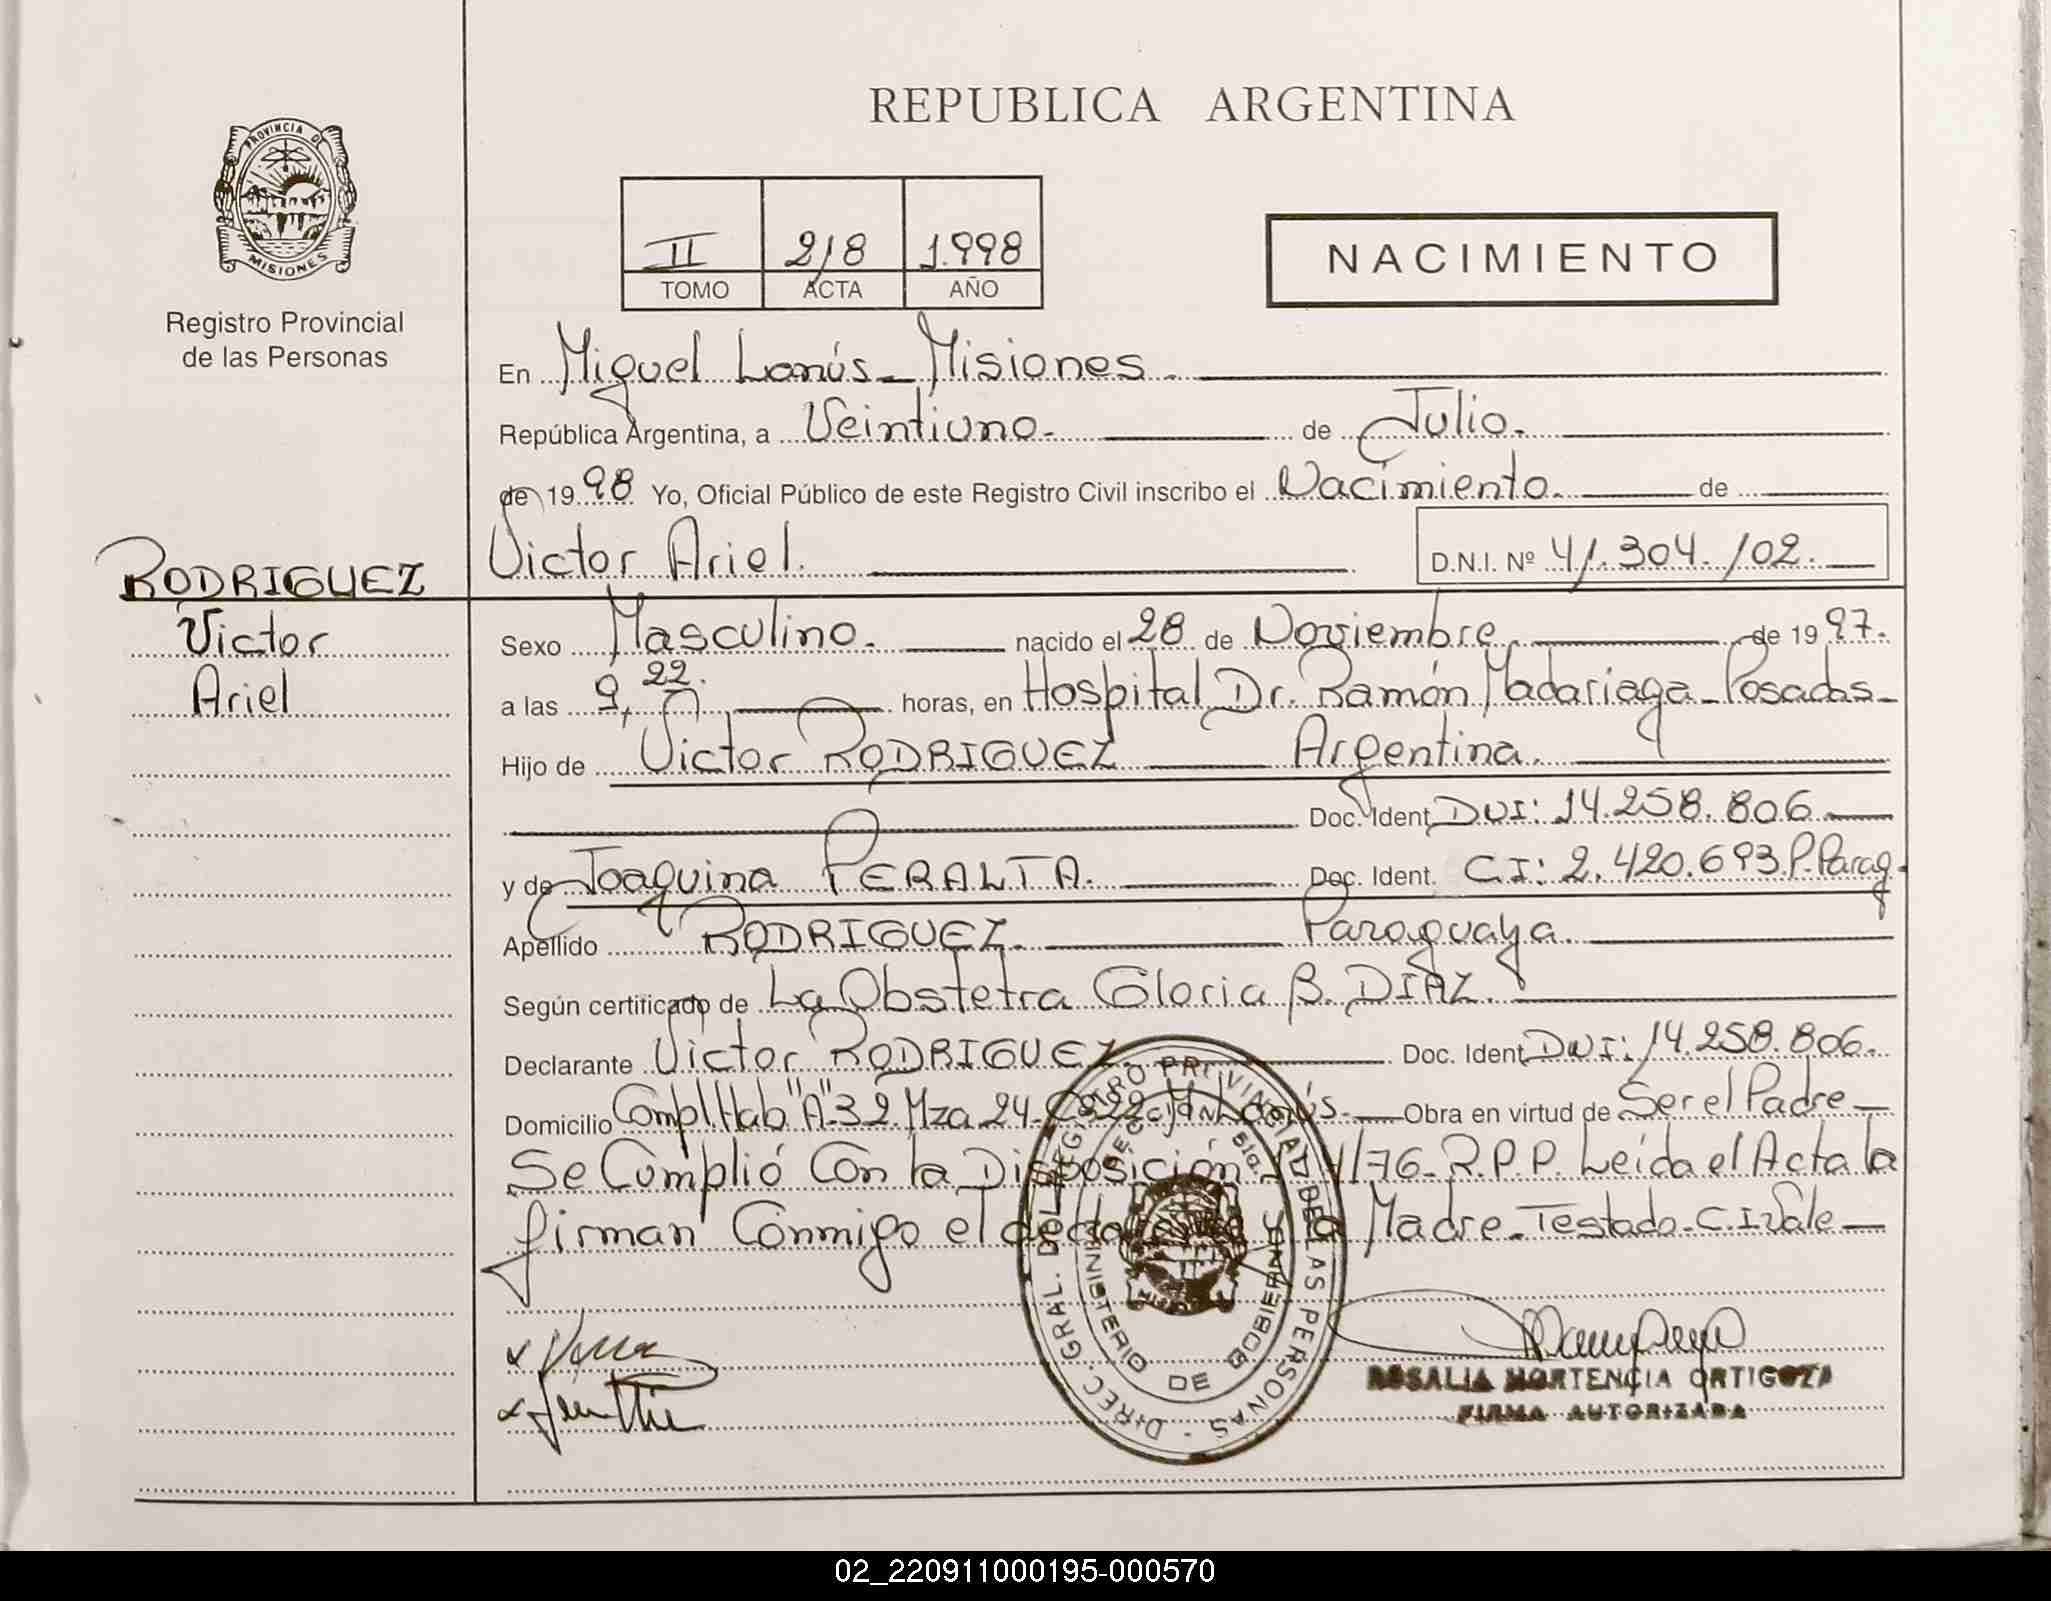 REPUBLICA ARGENTINA
PROVINCIA DE MISIONES
Registro Provincial
de las Personas
II 218 1.998
TOMO ACTA AÑO
NACIMIENTO
En Miguel Lanús - Misiones.
República Argentina, a Veintiuno. de Julio.
de 1998 Yo, Oficial Público de este Registro Civil inscribo el Nacimiento. de
Victor Ariel. D.N.I. Nº 41.304.102.
RODRIGUEZ
Victor
Ariel
Sexo Masculino. nacido el 28 de Noviembre. de 1997.
a las 9,22. horas, en Hospital Dr. Ramón Madariaga - Posadas -
Hijo de Victor RODRIGUEZ Argentina.
Doc. Ident. DNI: 14.258.806
y de Joaquina PERALTA. Doc. Ident. CI: 2.420.693 P. Parag.
Apellido RODRIGUEZ. Paraguaya.
Según certificado de La Obstetra Gloria B. DIAZ.
Declarante Victor RODRIGUEZ. Doc. Ident. DNI: 14.258.806.
Domicilio Compl Hab "A" 32 Mza 24 - Lanús. Obra en virtud de Ser el Padre
Se Cumplió Con la Disposición /76 - R.P.P. Leída el Acta la
firman Conmigo el la Madre - Testado - C.I Vale
DIREC. GRAL. DEL REGISTRO PROVINCIAL DE LAS PERSONAS
MINISTERIO DE GOBIERNO
ROSALIA HORTENCIA ORTIGOZA
FIRMA AUTORIZADA
02_220911000195-000570